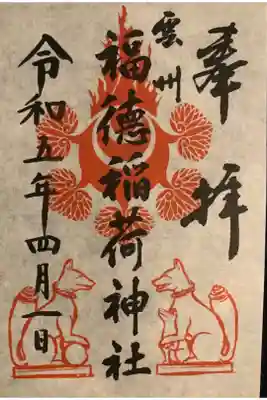 奉拝
雲州
福徳稲荷神社
令和五年四月一日